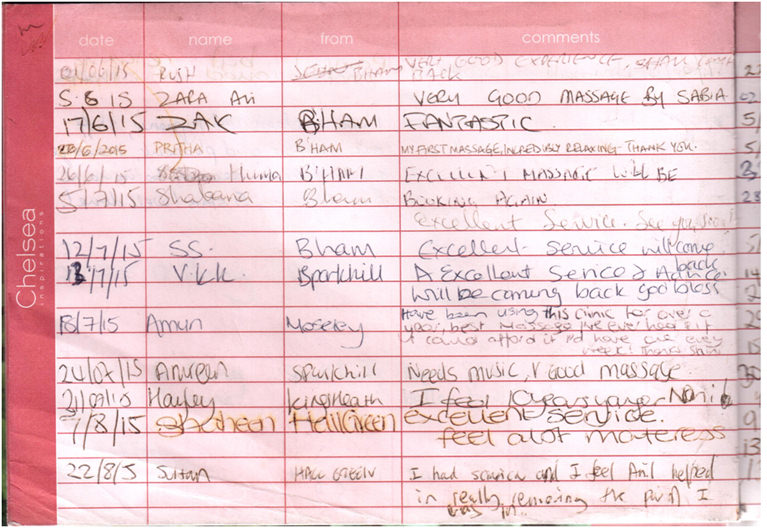 date name from comments
01/06/15 RUSH BHAM VERY GOOD EXPERIENCE,
BACK
5.6 15 ZARA Ali VERY GOOD MASSAGE BY SABIA
17/6/15 ZAK B'HAM FANTASTIC.
26/6/2015 PRITHA B'HAM MY FIRST MASSAGE, INCREDIBLY RELAXING. THANK YOU.
26/6/15 Huma B'HAM EXCELLENT MASSAGE WILL BE
5/7/15 Shabana Bham BOOKING AGAIN
Excellent Service. See you soon!
12/7/15 SS. Bham Excellent service will come
back
13/7/15 V.K.K. Sparkhill A Excellent Service & Advice
Will be coming back god bless
18/7/15 Amun Moseley Have been using this clinic for over a
year, best massage I've ever had & if
I could afford it I'd have one every
week! Thanks
24/07/15 Sparkhill Needs music, V Good massage.
31/07/15 Hayley Kings Heath I feel 10 years younger
7/8/15 Shaheen Hall Green excellent service.
feel a lot
22/8/5 Sultan HALL GREEN I had sciatica and I feel Anil helped
in really removing the pain I
was in.
Chelsea
inspirations